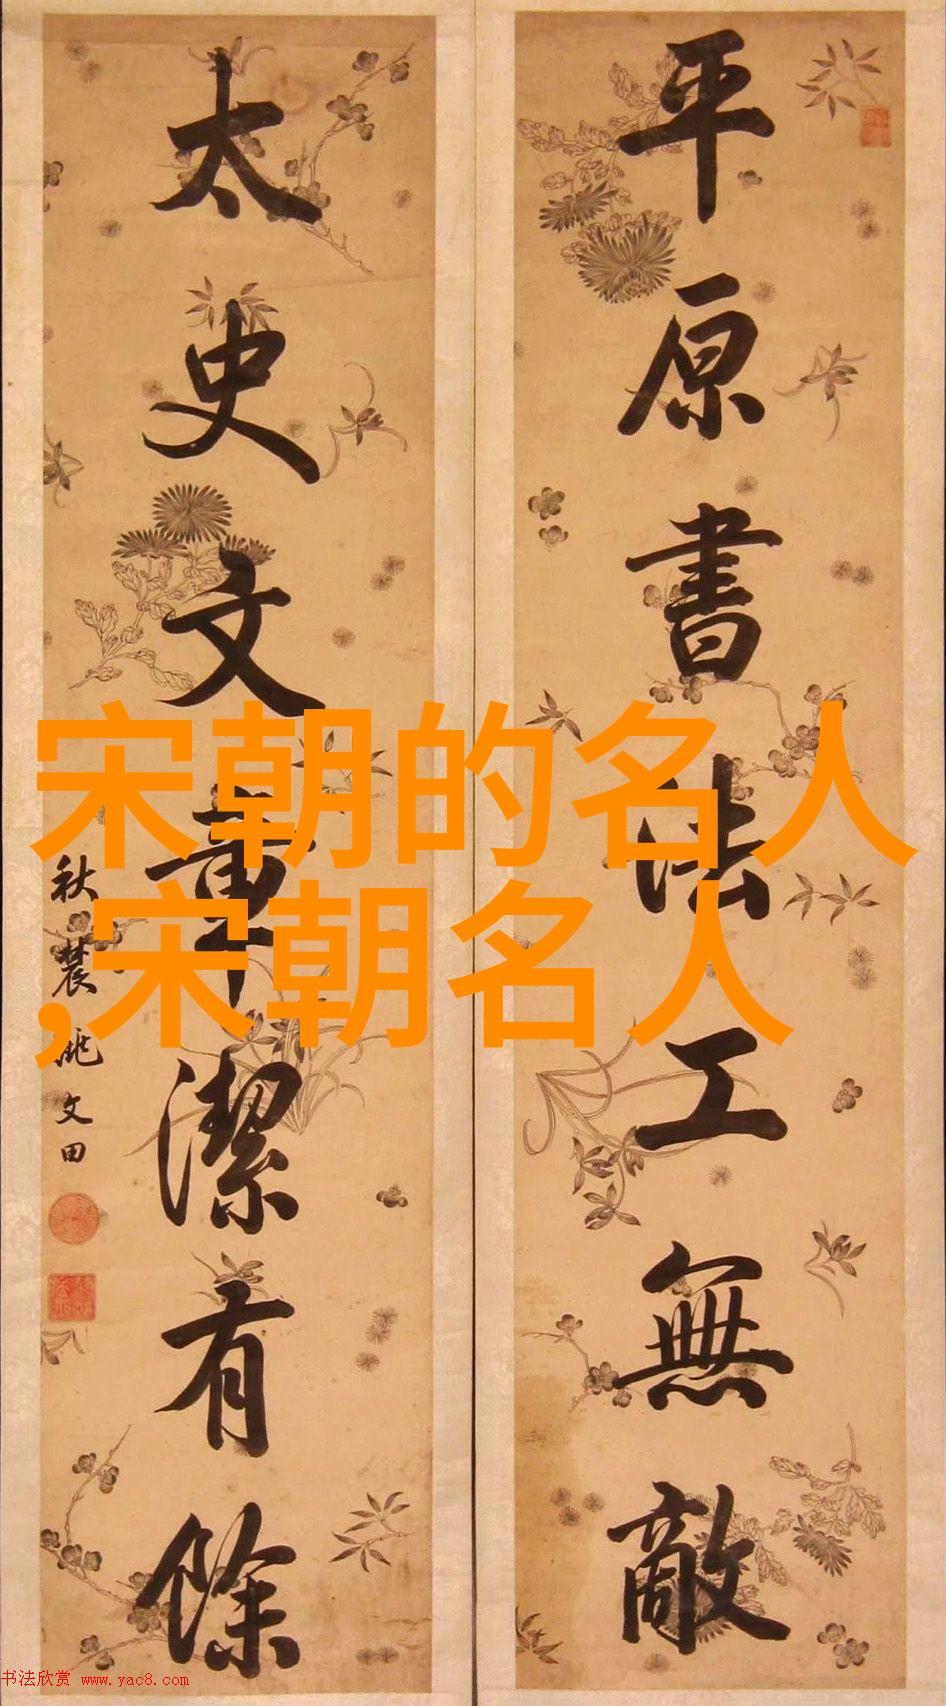 平原書法工無敵
太史文章潔有餘
秋農姚文田
宋朝的名人
,宋朝名人
书法欣赏 www.yac8.com